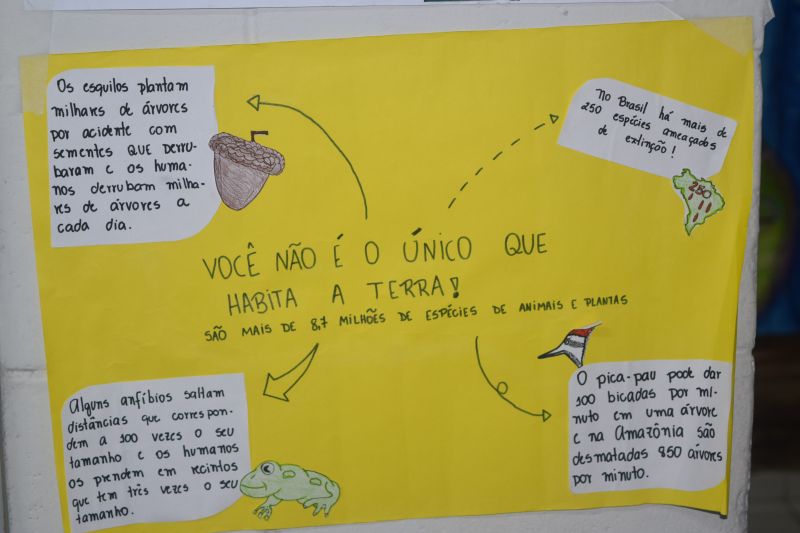 Os esquilos plantam
milhares de árvores
por acidente com
sementes que derru-
baram e os huma-
nos derrubam milha-
res de árvores a
cada dia.
No Brasil há mais de
250 espécies ameaçados
de extinção!
250
VOCÊ NÃO É O ÚNICO QUE
HABITA A TERRA!
SÃO MAIS DE 8,7 MILHÕES DE ESPÉCIES DE ANIMAIS E PLANTAS
Alguns anfíbios saltam
distâncias que correspon-
dem a 100 vezes o seu
tamanho e os humanos
os prendem em recintos
que tem três vezes o seu
tamanho.
O pica-pau pode dar
100 bicadas por mi-
nuto em uma árvore
e na Amazônia são
desmatadas 850 árvores
por minuto.